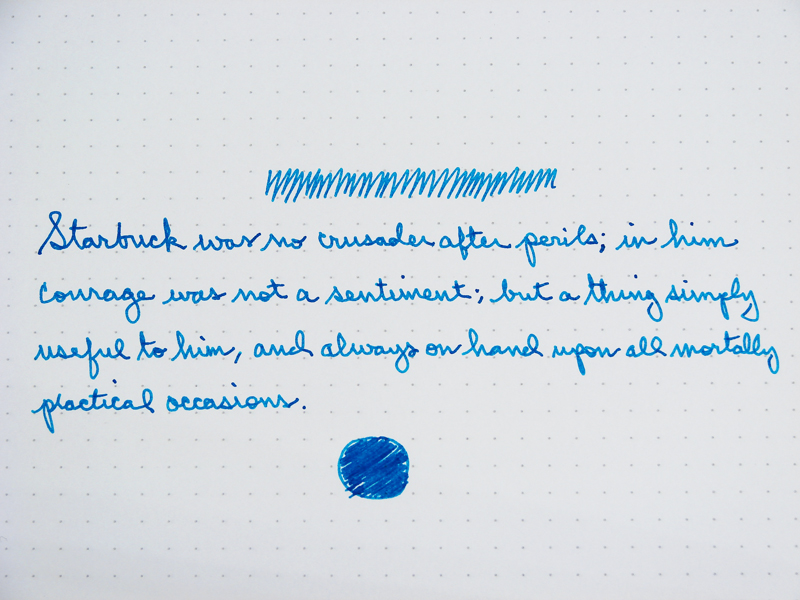 Starbuck was no crusader after perils; in him
courage was not a sentiment; but a thing simply
useful to him, and always on hand upon all mortally
practical occasions.